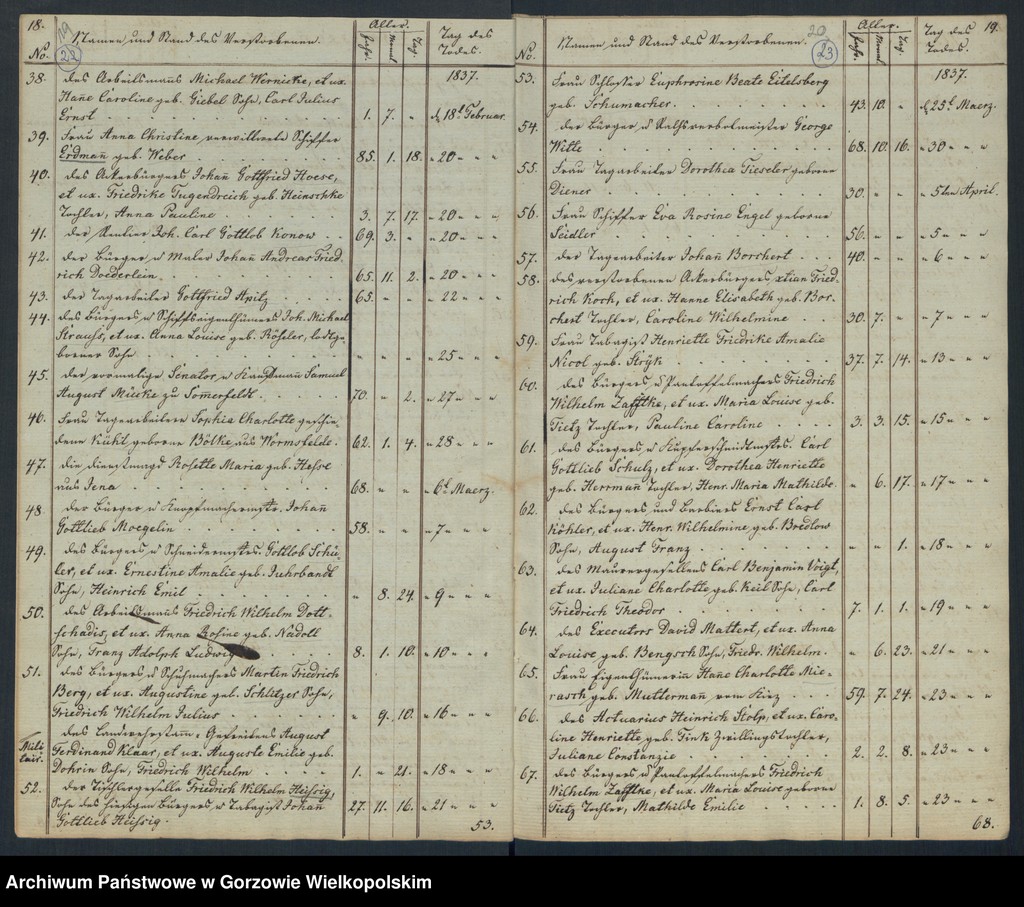 18.
19
22
No. Namen und Stand des Verstorbenen. Alter. Jahr. Monat Tag. Tag des Todes.
1837.
38. des Arbeitsmanns Michael Wernicke, et ux.
Hane Caroline geb. Giebel Sohn, Carl Julius
Ernst 1. 7. " d. 18t Februar.
39. Frau Anna Christine verwittwete Schiffer
Erdman geb. Weber 85. 1. 18. " 20 " "
40. des Ackerbürgers Johan Gottfried Hoese,
et ux. Friedrike Tugendreich geb. Heinschke
Tochter, Anna Pauline 3. 7. 17. " 20 " "
41. der Rentier Joh. Carl Gottlob Konow 69. 3. " " 20 " "
42. der Bürger u Maler Johan Andreas Fried-
rich Doederlein 65. 11. 2. " 20 " "
43. der Tagarbeiter Gottfried Apitz 65. " " " 22 " "
44. des Bürgers u Schiffseigenthümers Joh. Michael
Strauss, et ux. Anna Louise geb. Röseler, todtge-
borner Sohn " " " " 25 " "
45. der vormalige Senator u Kaufman Samuel
August Mücke zu Somerfeldt. 70. " 2. " 27 " "
46. Frau Tagearbeitern Sophie Charlotte geschie-
dene Kükht geborne Bölke aus Wormsfelde. 62. 1. 4. " 28 " "
47. die Dienstmagd Rosette Maria geb. Hesse
aus Jena 68. " " " 6t Maerz.
48. der Bürger u Knopfmachermstr. Johan
Gottlieb Moegelin 58. " " " 7 " "
49. des Bürgers u Schneidermstrs. Gottlob Schü-
ler, et ux. Ernestine Amalie geb. Fuhrbandt
Sohn, Heinrich Emil " 8. 24. " 9 " "
50. des Arbeitsmanns Friedrich Wilhelm Dott-
schadis, et ux. Anna Rosine geb. Nadoll
Sohn, Franz Adolph Ludwig 8. 1. 10. " 10 " "
51. des Bürgers u Schuhmachers Martin Friedrich
Berg, et ux. Augustine geb. Schlitzer Sohn,
Friedrich Wilhelm Julius " 9. 10. " 16 " "
Mili
tair. des Landwehrstam, Gefreiten August
Ferdinand Klaar, et ux. Auguste Emilie geb.
Dohrin Sohn, Friedrich Wilhelm 1. " 21. " 18 " "
52. der Tischlergeselle Friedrich Wilhelm Heissig,
Sohn des hiesigen Bürgers u Tabagist Johan
Gottlieb Heissig. 27. 11. 16. " 21 " "
53.
19.
20
23
No. Namen und Stand des Verstorbenen. Alter. Jahr. Monat Tag. Tag des Todes.
1837.
53. Frau Schlosser Euphrosine Beate Eitelsberg
geb. Schumacher. 43. 10. " d. 25t Maerz.
54. der Bürger u Rathswerbolmeister George
Witte 68. 10. 16. " 30 " "
55. Frau Tagarbeiter Dorothea Tieseler geborne
Diener 30. " " " 5ten April.
56. Frau Schiffer Eva Rosine Engel geborne
Seidler 56. " " " 5 " "
57. der Tagarbeiter Johan Borchert 40. " " " 6 " "
58. des verstorbenen Ackerbürgers xtian Fried-
rich Koch, et ux. Hanne Elisabeth geb. Bor-
chert Tochter, Caroline Wilhelmine 30. 7. " " 7 " "
59. Frau Tabagist Henriette Friedrike Amalie
Nicol geb. Stryk 37. 7. 14. " 13 " "
60. des Bürgers, u Pantoffelmachers Friedrich
Wilhelm Zafftke, et ux. Maria Louise geb.
Tietz Tochter, Pauline Caroline 3. 3. 15. " 15 " "
61. des Bürgers u Kupferschmidtmstrs. Carl
Gottlieb Schulz, et ux. Dorothea Henriette
geb. Herrman Tochter, Henr. Maria Mathilde. " 6. 17. " 17 " "
62. des Bürgers und Barbiers Ernst Carl
Köhler, et ux. Henr. Wilhelmine, geb. Bredlow
Sohn, August Franz " " 1. " 18 " "
63. des Maurergesellens Carl Benjamin Voigt,
et ux. Juliane Charlotte geb. Keil Sohn, Carl
Friedrich Theodor 7. 1. 1. " 19 " "
64. des Executors David Mattert, et ux. Anna
Louise geb. Bengsch Sohn, Friedr. Wilhelm. " 6. 23. " 21 " "
65. Frau Eigenthümerin Hane Charlotte Mie-
rasch geb. Mutterman vom Kiez 59. 7. 24. " 23 " "
66. des Actuarius Heinrich Stolp, et ux. Caro-
line Henriette, geb. Fink Zwillingstochter,
Juliane Constanzie 2. 2. 8. " 23 " "
67. des Bürgers u Pantoffelmachers Friedrich
Wilhelm Zafftke, et ux. Maria Louise geborne
Tietz Tochter, Mathilde Emilie 1. 8. 5. " 23 " "
68.
Archiwum Państwowe w Gorzowie Wielkopolskim